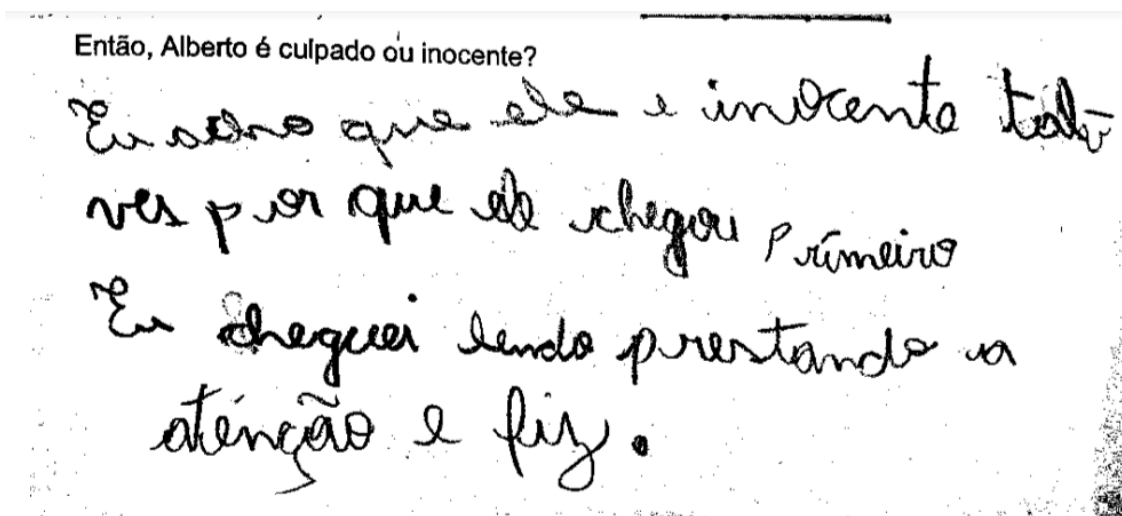 Então, Alberto é culpado ou inocente?
Eu acho que ele e inocente tal-
ves por que ele chegou primeiro
Eu cheguei lendo prestando a
atenção e fiz.